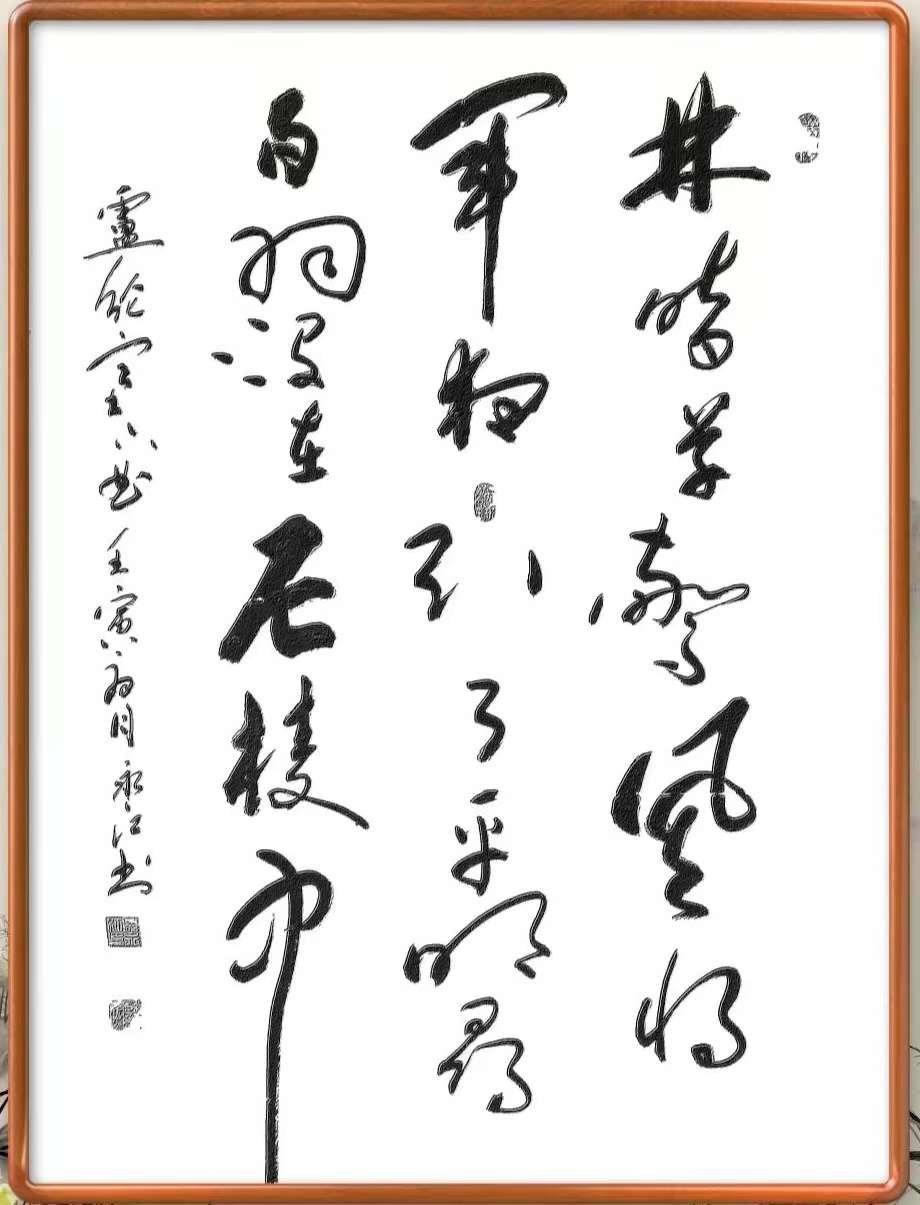 林暗草驚風将
軍夜引弓平明尋
白羽没在石棱中
盧纶塞下曲 壬寅 月 永江书